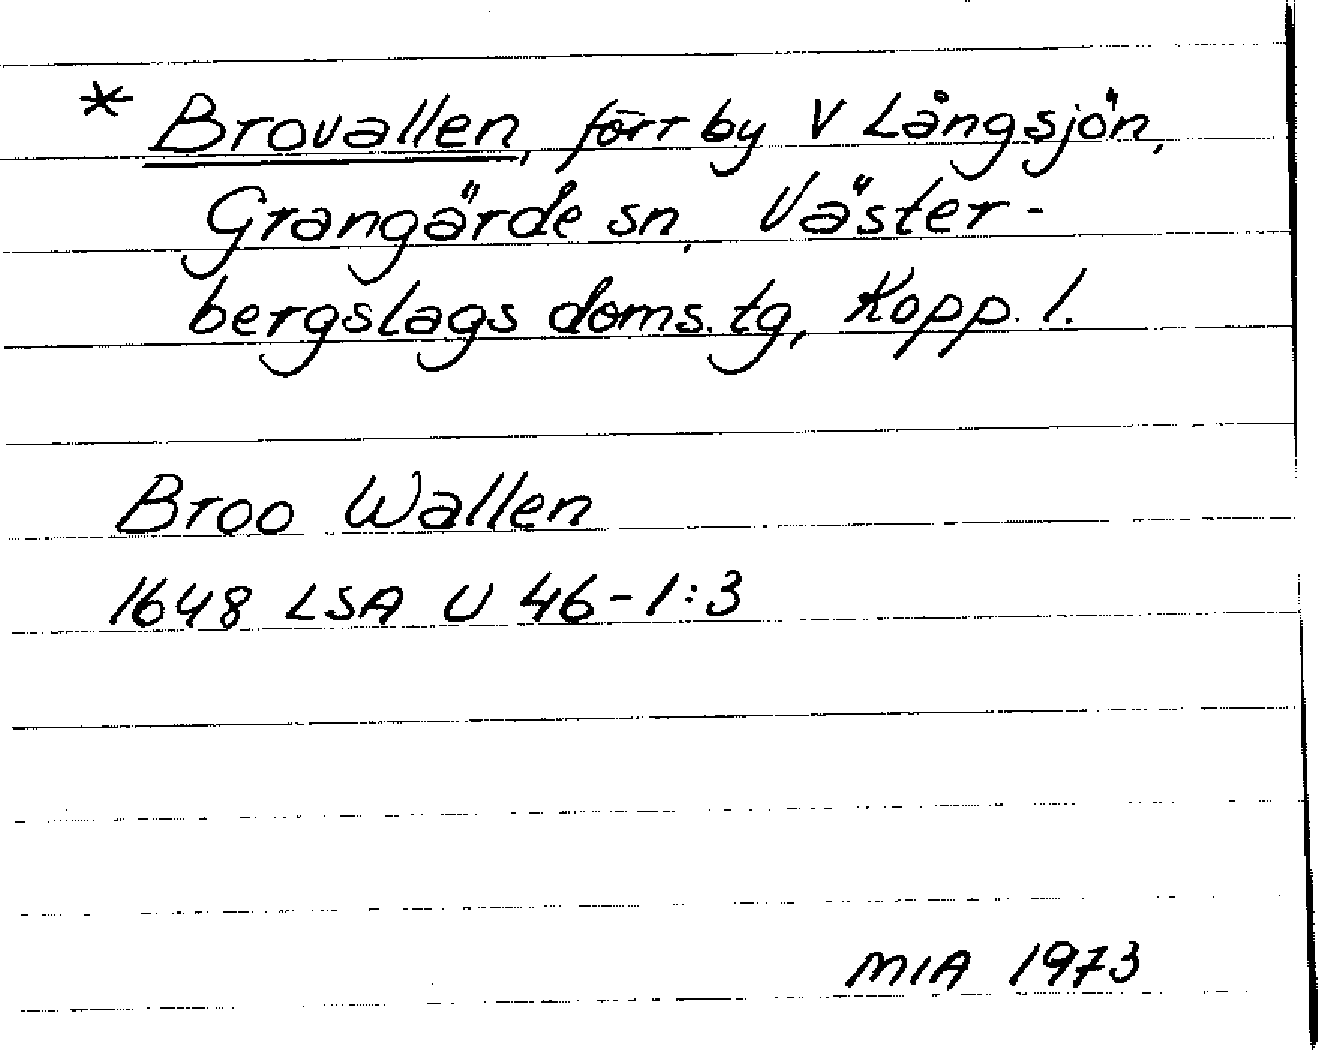 * Brovallen, förr by V Långsjön,
Grangärde sn, Väster-
bergslags doms. tg, Kopp. l.
Broo Wallen
1648 LSA U 46-1:3
MIA 1973